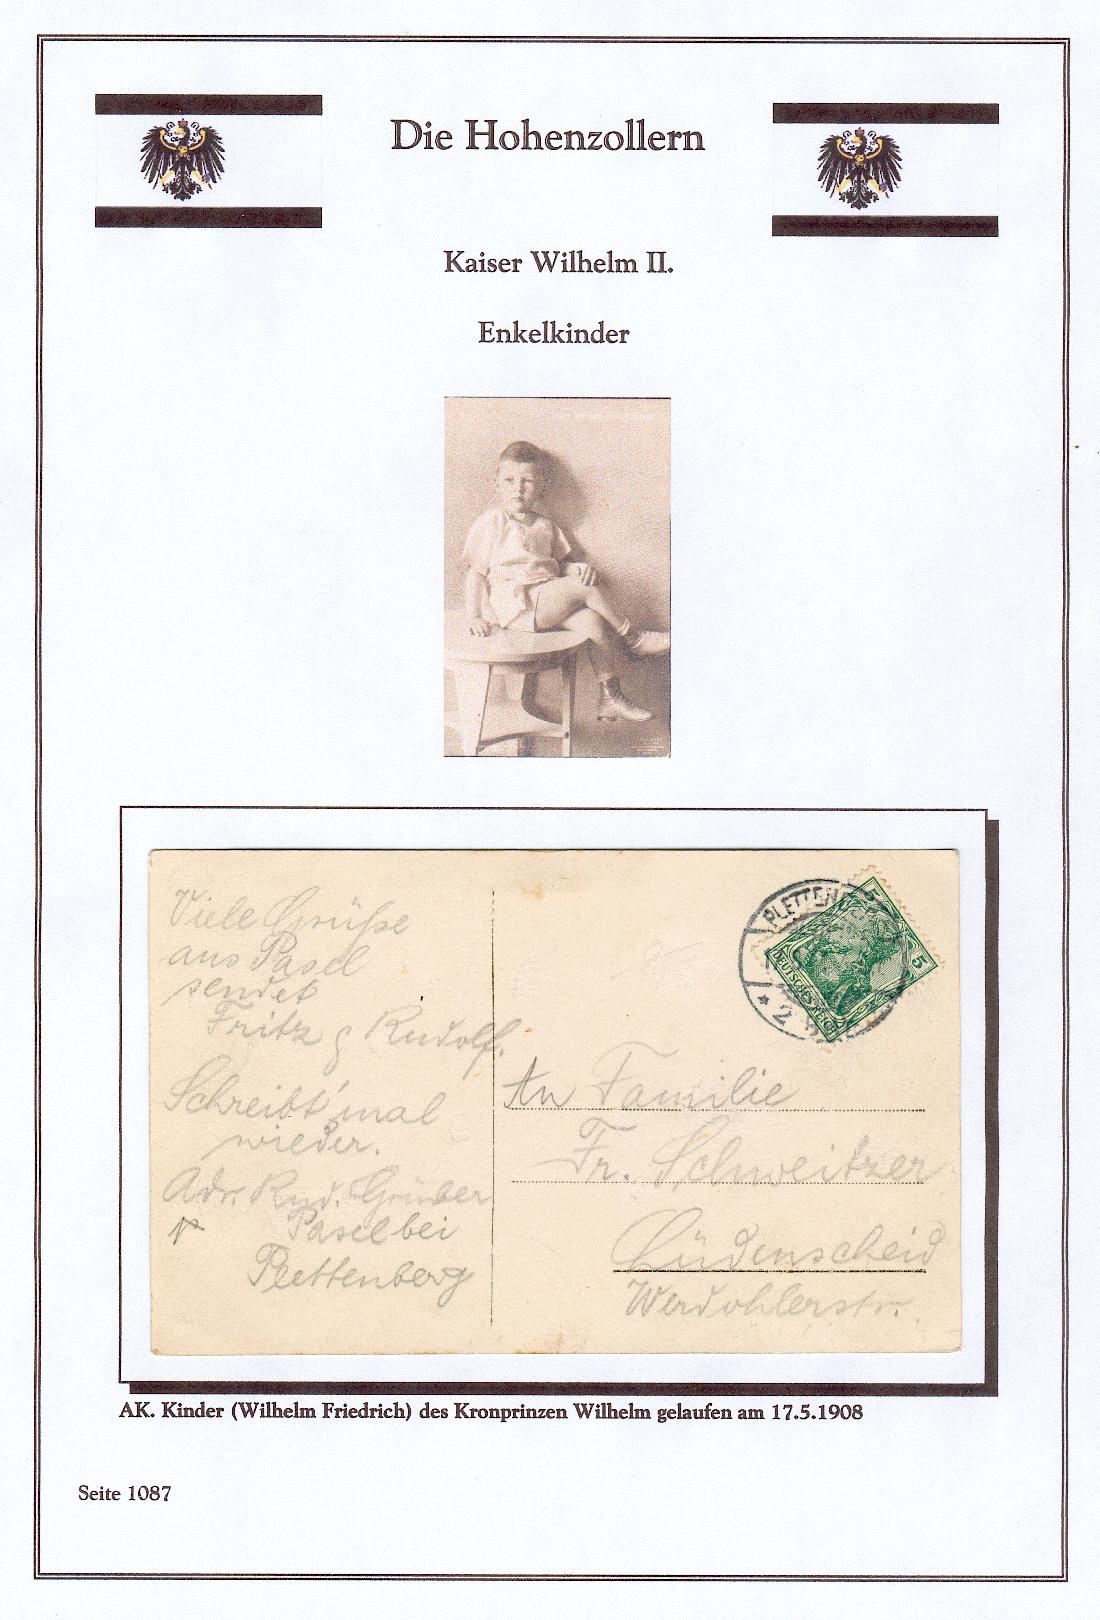 Die Hohenzollern
Kaiser Wilhelm II.
Enkelkinder
Viele Grüße
aus Pasel
sendet
Fritz & Rudolf.
Schreibt mal
wieder.
Adr. Rud. Grüber
Pasel bei
Plettenberg
PLETTEN
* 2
5
5
DEUTSCHES REICH
An Familie
Fr. Schweitzer
Lüdenscheid
Werdohlerstr.
AK. Kinder (Wilhelm Friedrich) des Kronprinzen Wilhelm gelaufen am 17.5.1908
Seite 1087